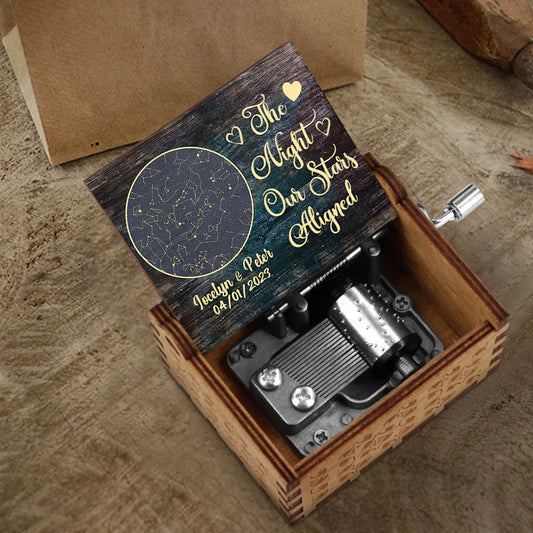 The
Night
Our Stars
Aligned
Jocelyn & Peter
04/01/2023